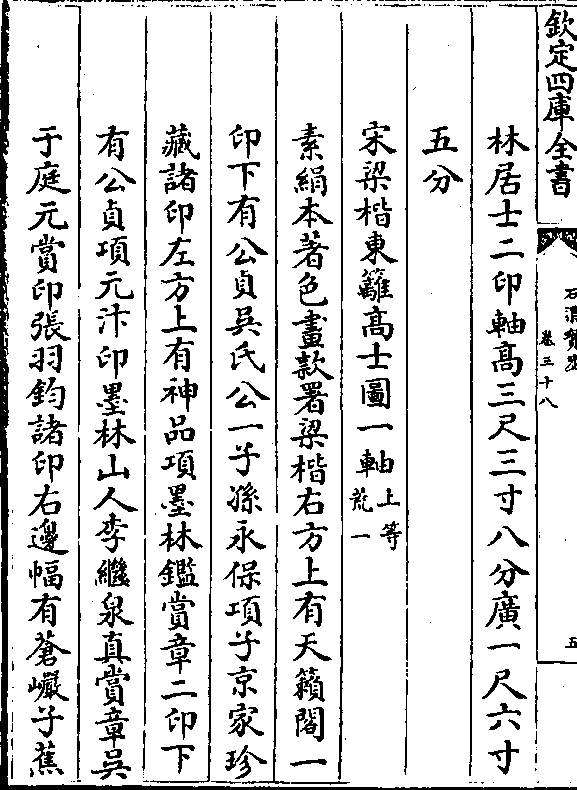 欽定四庫全書
石渠寶笈
卷三十八
五
林居士二印軸高三尺三寸八分廣一尺六寸
五分
宋梁楷東籬高士圖一軸上等荒一
素絹本著色畫款署梁楷右方上有天籟閣一
印下有公貞吳氏公一子孫永保項子京家珍
藏諸印左方上有神品項墨林鑑賞章二印下
有公貞項元汴印墨林山人李繼泉真賞章吳
于庭元賞印張羽鈞諸印右邊幅有蒼巗子蕉